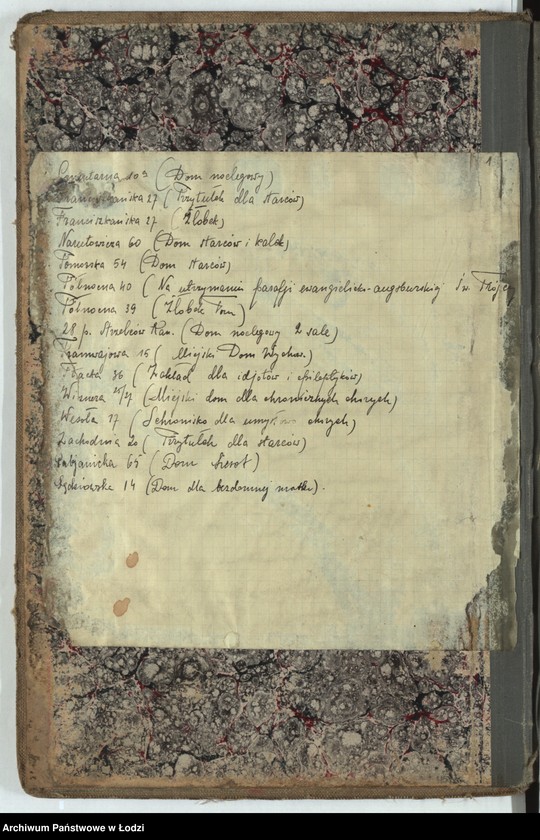 1
Cmentarna 10ᵃ (Dom noclegowy)
Franciszkańska 27 (Przytułek dla starców)
Franciszkańska 27 (Żłobek)
Narutowicza 60 (Dom starców i kalek)
Pomorska 54 (Dom starców)
Północna 40 (Na utrzymaniu parafji ewangielicko-augsburskiej Św. Trójcy
Północna 39 (Żłobek
28 p. Strzelców Kan. (Dom noclegowy 2 sale)
Tramwajowa 15 (Miejski Dom Wychow.)
Tkacka 36 (Zakład dla idjotów i epileptyków)
Wiznera 25/27 (Miejski dom dla chronicznych chorych)
Wesoła 17 (Schronisko dla umysłowo chorych)
Zachodnia 20 (Przytułek dla starców)
Pabjanicka 65 (Dom Sierot)
14 (Dom dla bezdomnej matki).
Archiwum Państwowe w Łodzi